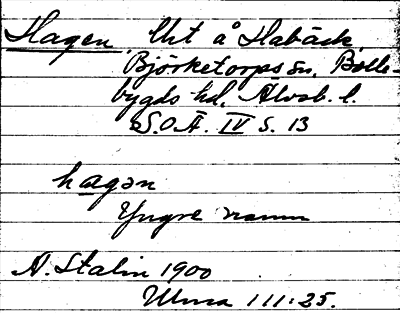 Hagen, Uht å Habäck,
Björketorps sn, Bolle-
bygds hd, Älvsb. l.
S.O.Ä. IV s. 13
hagən
Yngre namn
A. Stalin 1900
Ulma 111:25.